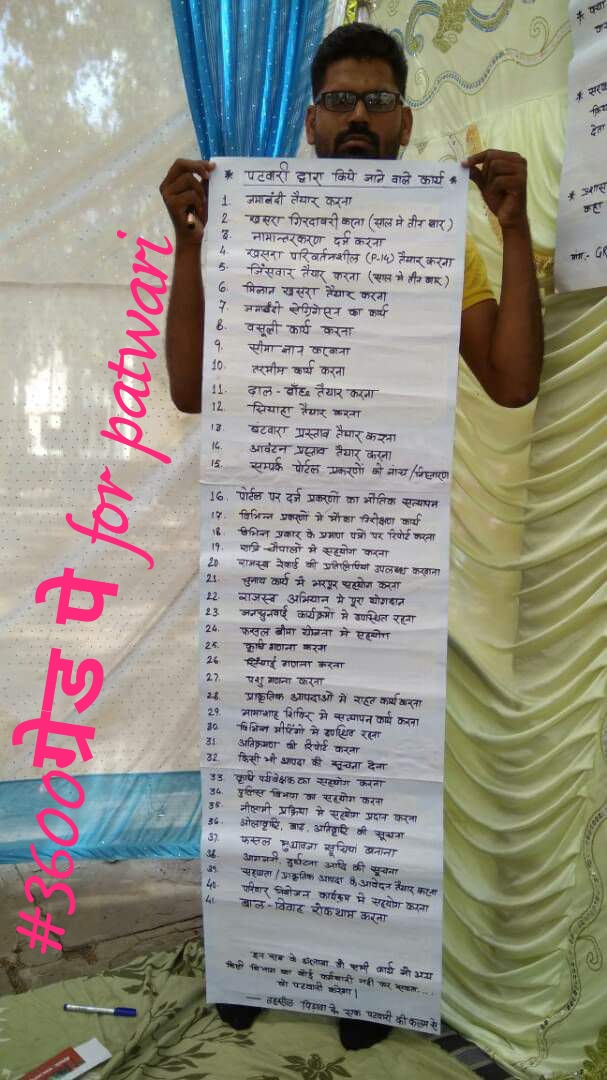 * पटवारी द्वारा किये जाने वाले कार्य *
1. जमाबंदी तैयार करना
2. खसरा गिरदावरी करना (साल मे तीन बार)
3. नामान्तरकरण दर्ज करना
4. खसरा परिवर्तनशील (P-14) तैयार करना
5. जिंसवार तैयार करना (साल मे तीन बार)
6. मिलान खसरा तैयार करना
7. जमाबंदी सेग्रिगेसन का कार्य
8. वसूली कार्य करना
9. सीमा ज्ञान करवाना
10. तरमीम कार्य करना
11. ढाल-बाँछ तैयार करना
12. सियाहा तैयार करना
13. बटवारा प्रस्ताव तैयार करना
14. आवंटन प्रस्ताव तैयार करना
15. सम्पर्क पोर्टल प्रकरणों की जांच/निस्तारण
16. पोर्टल पर दर्ज प्रकरणों का भौतिक सत्यापन
17. विभिन्न प्रकरणों मे मौका निरीक्षण कार्य
18. विभिन्न प्रकार के प्रमाण पत्रों पर रिपोर्ट करना
19. रात्रि चौपालो मे सहयोग करना
20. राजस्व रेकार्ड की प्रतिलिपियां उपलब्ध करवाना
21. चुनाव कार्य मे भरपूर सहयोग करना
22. राजस्व अभियान मे पूरा योगदान
23. जनसुनवाई कार्यक्रमो मे उपस्थित रहना
24. फसल बीमा योजना मे सहयोग
25. कृषि गणना करना
26. सिंचाई गणना करना
27. पशु गणना करना
28. प्राकृतिक आपदाओं मे राहत कार्य करना
29. भामाशाह शिविर मे सत्यापन कार्य करना
30. विभिन्न मीटिंगो मे उपस्थित रहना
31. अतिक्रमण की रिपोर्ट करना
32. किसी भी आपदा की सूचना देना
33. कृषि पर्यवेक्षक का सहयोग करना
34. पुलिस विभाग का सहयोग करना
35. नीलामी प्रक्रिया मे सहयोग प्रदान करना
36. ओलावृष्टि, बाढ़, अतिवृष्टि की सूचना
37. फसल मुआवजा सूचियां बनाना
38. आगजनी, दुर्घटना आदि की सूचना
39. सहायता/प्राकृतिक आपदा के आवेदन तैयार करना
40. परिवार नियोजन कार्यक्रम मे सहयोग करना
41. बाल-विवाह रोकथाम करना
इन सब के अलावा वो सभी कार्य जो अन्य
किसी विभाग का कोई कर्मचारी नही कर सकता...
वो पटवारी करेगा।
— तहसील पिडावा के एक पटवारी की कलम से
#3600ग्रेड पे for patwari
* क्या
* सरका
देता
* प्रशास
कहा
मांग:- GR